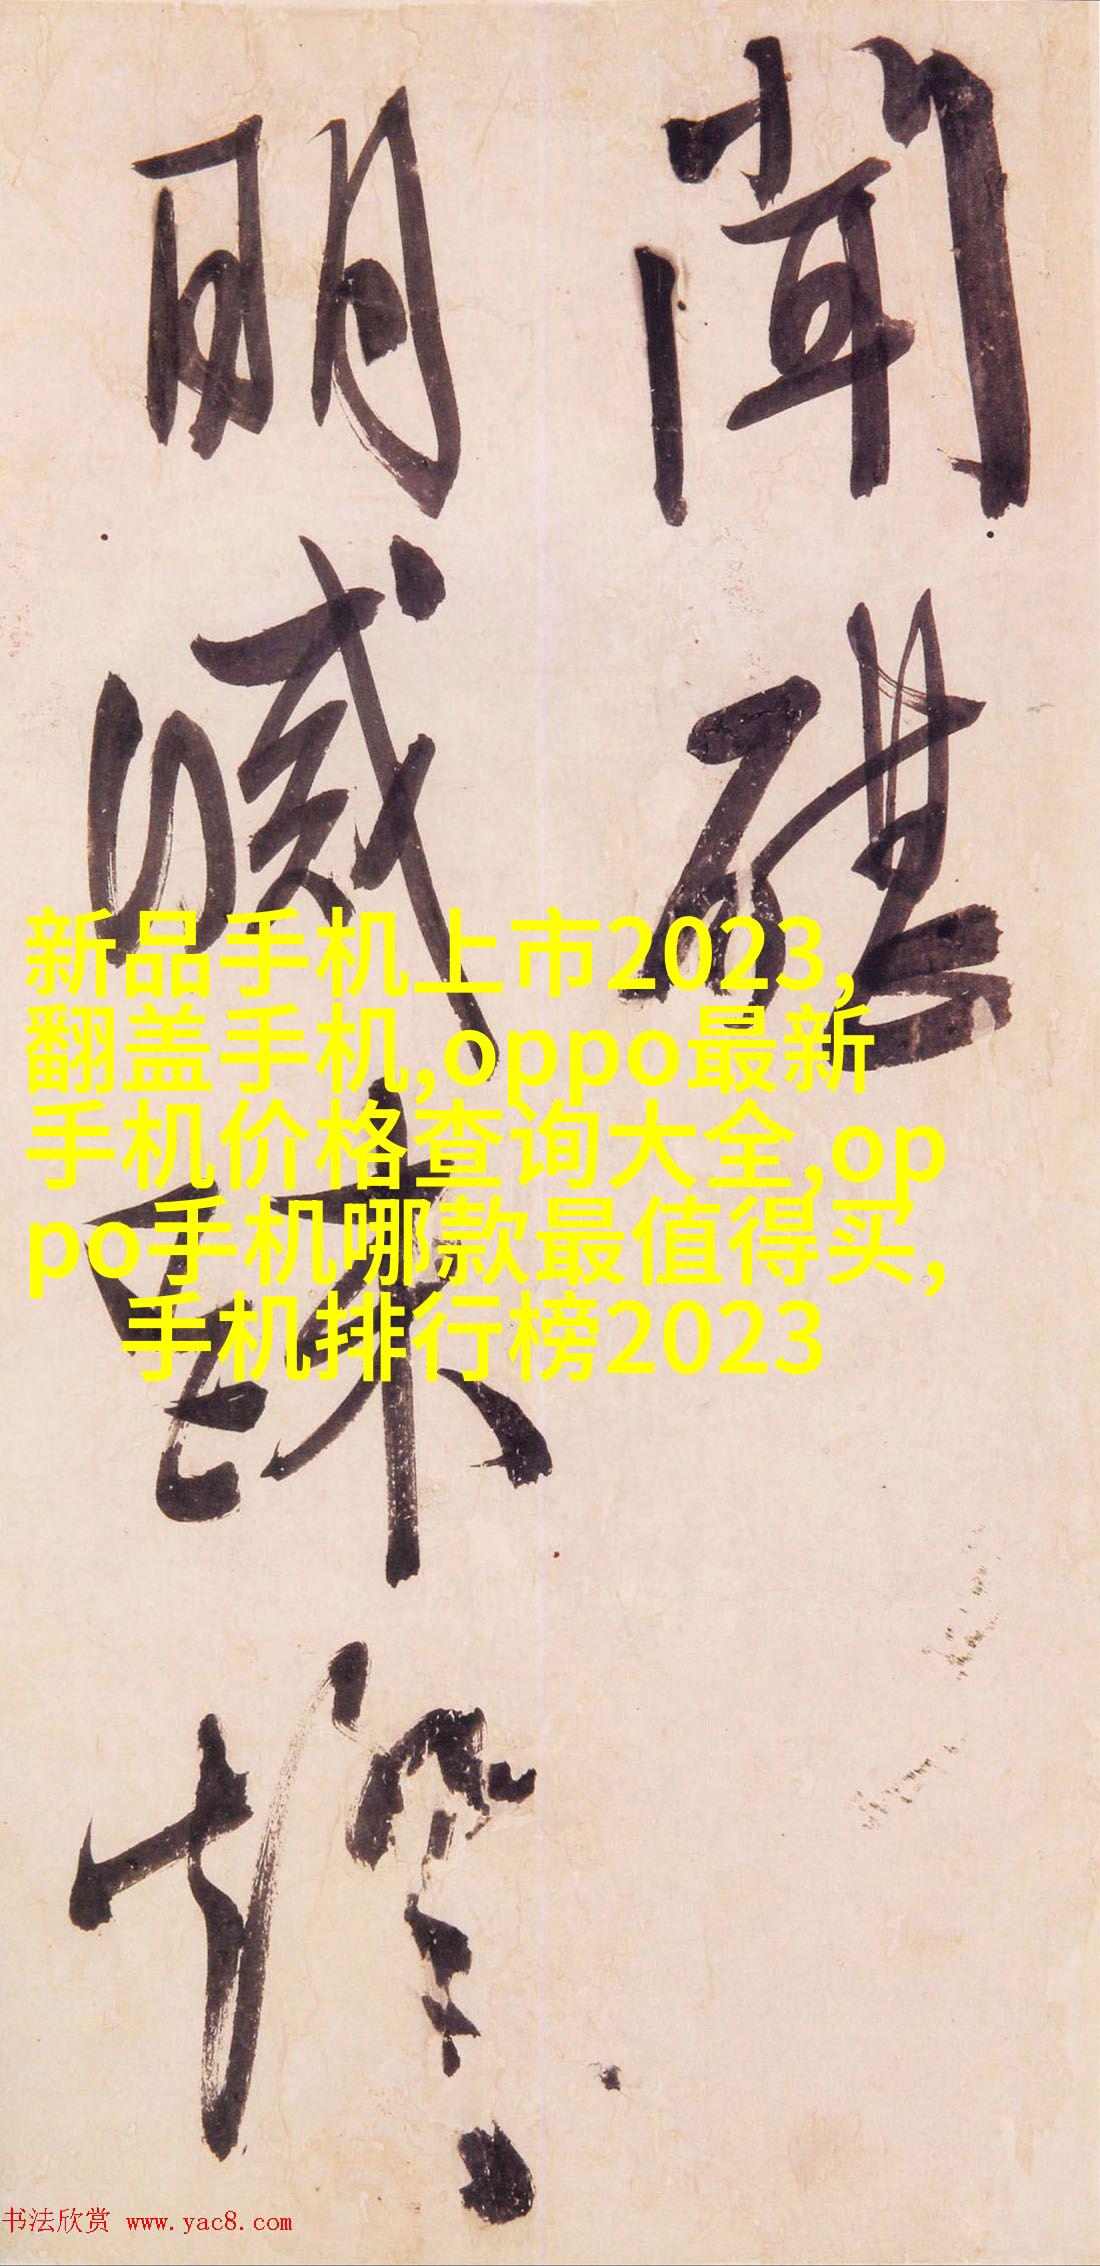 聞碪
明滅踈燈
新品手机上市2023,
翻盖手机,oppo最新
手机价格查询大全,op
po手机哪款最值得买,
手机排行榜2023
书法欣赏 www.yac8.com